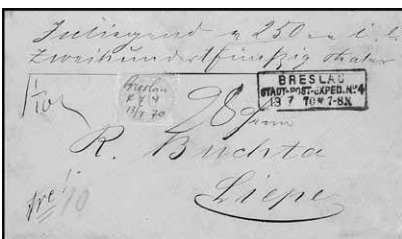 Inliegend 250
Zweihundertfünfzig thaler
1/10
Breslau
13/7 70
BRESLAU
STADT-POST-EXPED. No 4
13 7 70 * 7-8N
R. Buchta
Liepe
10